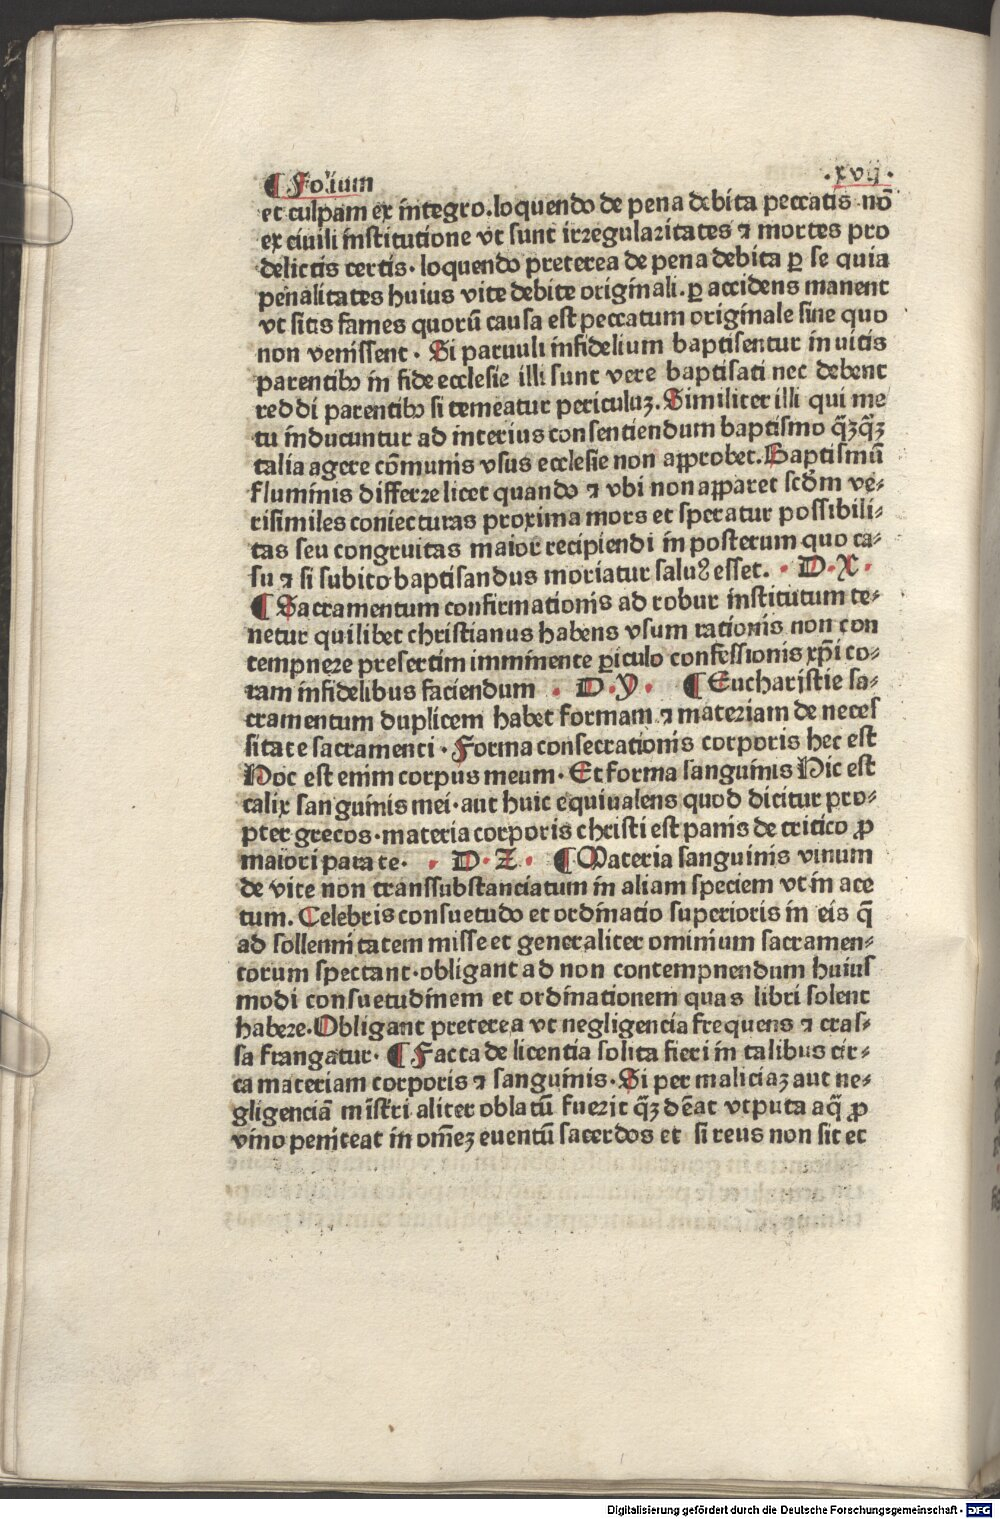 ¶ Folium .xvij.
et culpam ex integro. loquendo de pena debita peccatis nō
ex ciuili institutione vt sunt irregularitates ⁊ mortes pro
delictis certis. loquendo preterea de pena debita ꝑ se quia
penalitates huius vite debite originali. ꝑ accidens manent
vt sitis fames quorū causa est peccatum originale sine quo
non venissent. Si paruuli infidelium baptisentur inuitis
parentibꝫ in fide ecclesie illi sunt vere baptisati nec debent
reddi parentibꝫ si temeatur periculuꝫ. Similiter illi qui me
tu inducuntur ad interius consentiendum baptismo q̄ꝫq̄ꝫ
talia agere cōmunis vsus ecclesie non approbet. Baptismū
fluminis differre licet quando ⁊ vbi non apparet scdm̄ ve⸗
risimiles coniecturas proxima mors et speratur possibili⸗
tas seu congruitas maior recipiendi in posterum quo ca⸗
su ⁊ si subito baptisandus moriatur saluꝰ esset. . D . X .
¶ Sacramentum confirmationis ad robur institutum te⸗
netur quilibet christianus habens vsum rationis non con
tempnere presertim imminente ꝑiculo confessionis xp̄i co⸗
ram infidelibus faciendum . D . Y . ¶ Eucharistie sa⸗
cramentum duplicem habet formam ⁊ materiam de neces
sitate sacramenti. Forma consecrationis corporis hec est
Hoc est enim corpus meum. Et forma sanguinis Hic est
calix sanguinis mei. aut huic equiualens quod dicitur pro⸗
pter grecos. materia corporis christi est panis de tritico ꝓ
maiori parate. . D . Z . ¶ Materia sanguinis vinum
de vite non transsubstanciatum in aliam speciem vt in ace
tum. Celebris consuetudo et ordinatio superioris in eis q̄
ad sollennitatem misse et generaliter ominium sacramen⸗
torum spectant. obligant ad non contempnendum huius
modi consuetudinem et ordinationem quas libri solent
habere. Obligant preterea vt negligencia frequens ⁊ cras⸗
sa frangatur. ¶ Facta de licentia solita fieri in talibus cir⸗
ca materiam corporis ⁊ sanguinis. Si per maliciaꝫ aut ne⸗
gligenciā mistri aliter oblatū fuerit q̄ꝫ dēat vtputa aq̄ ꝓ
vino peniteat in om̄eꝫ euentū sacerdos et si reus non sit et
Digitalisierung gefördert durch die Deutsche Forschungsgemeinschaft - DFG